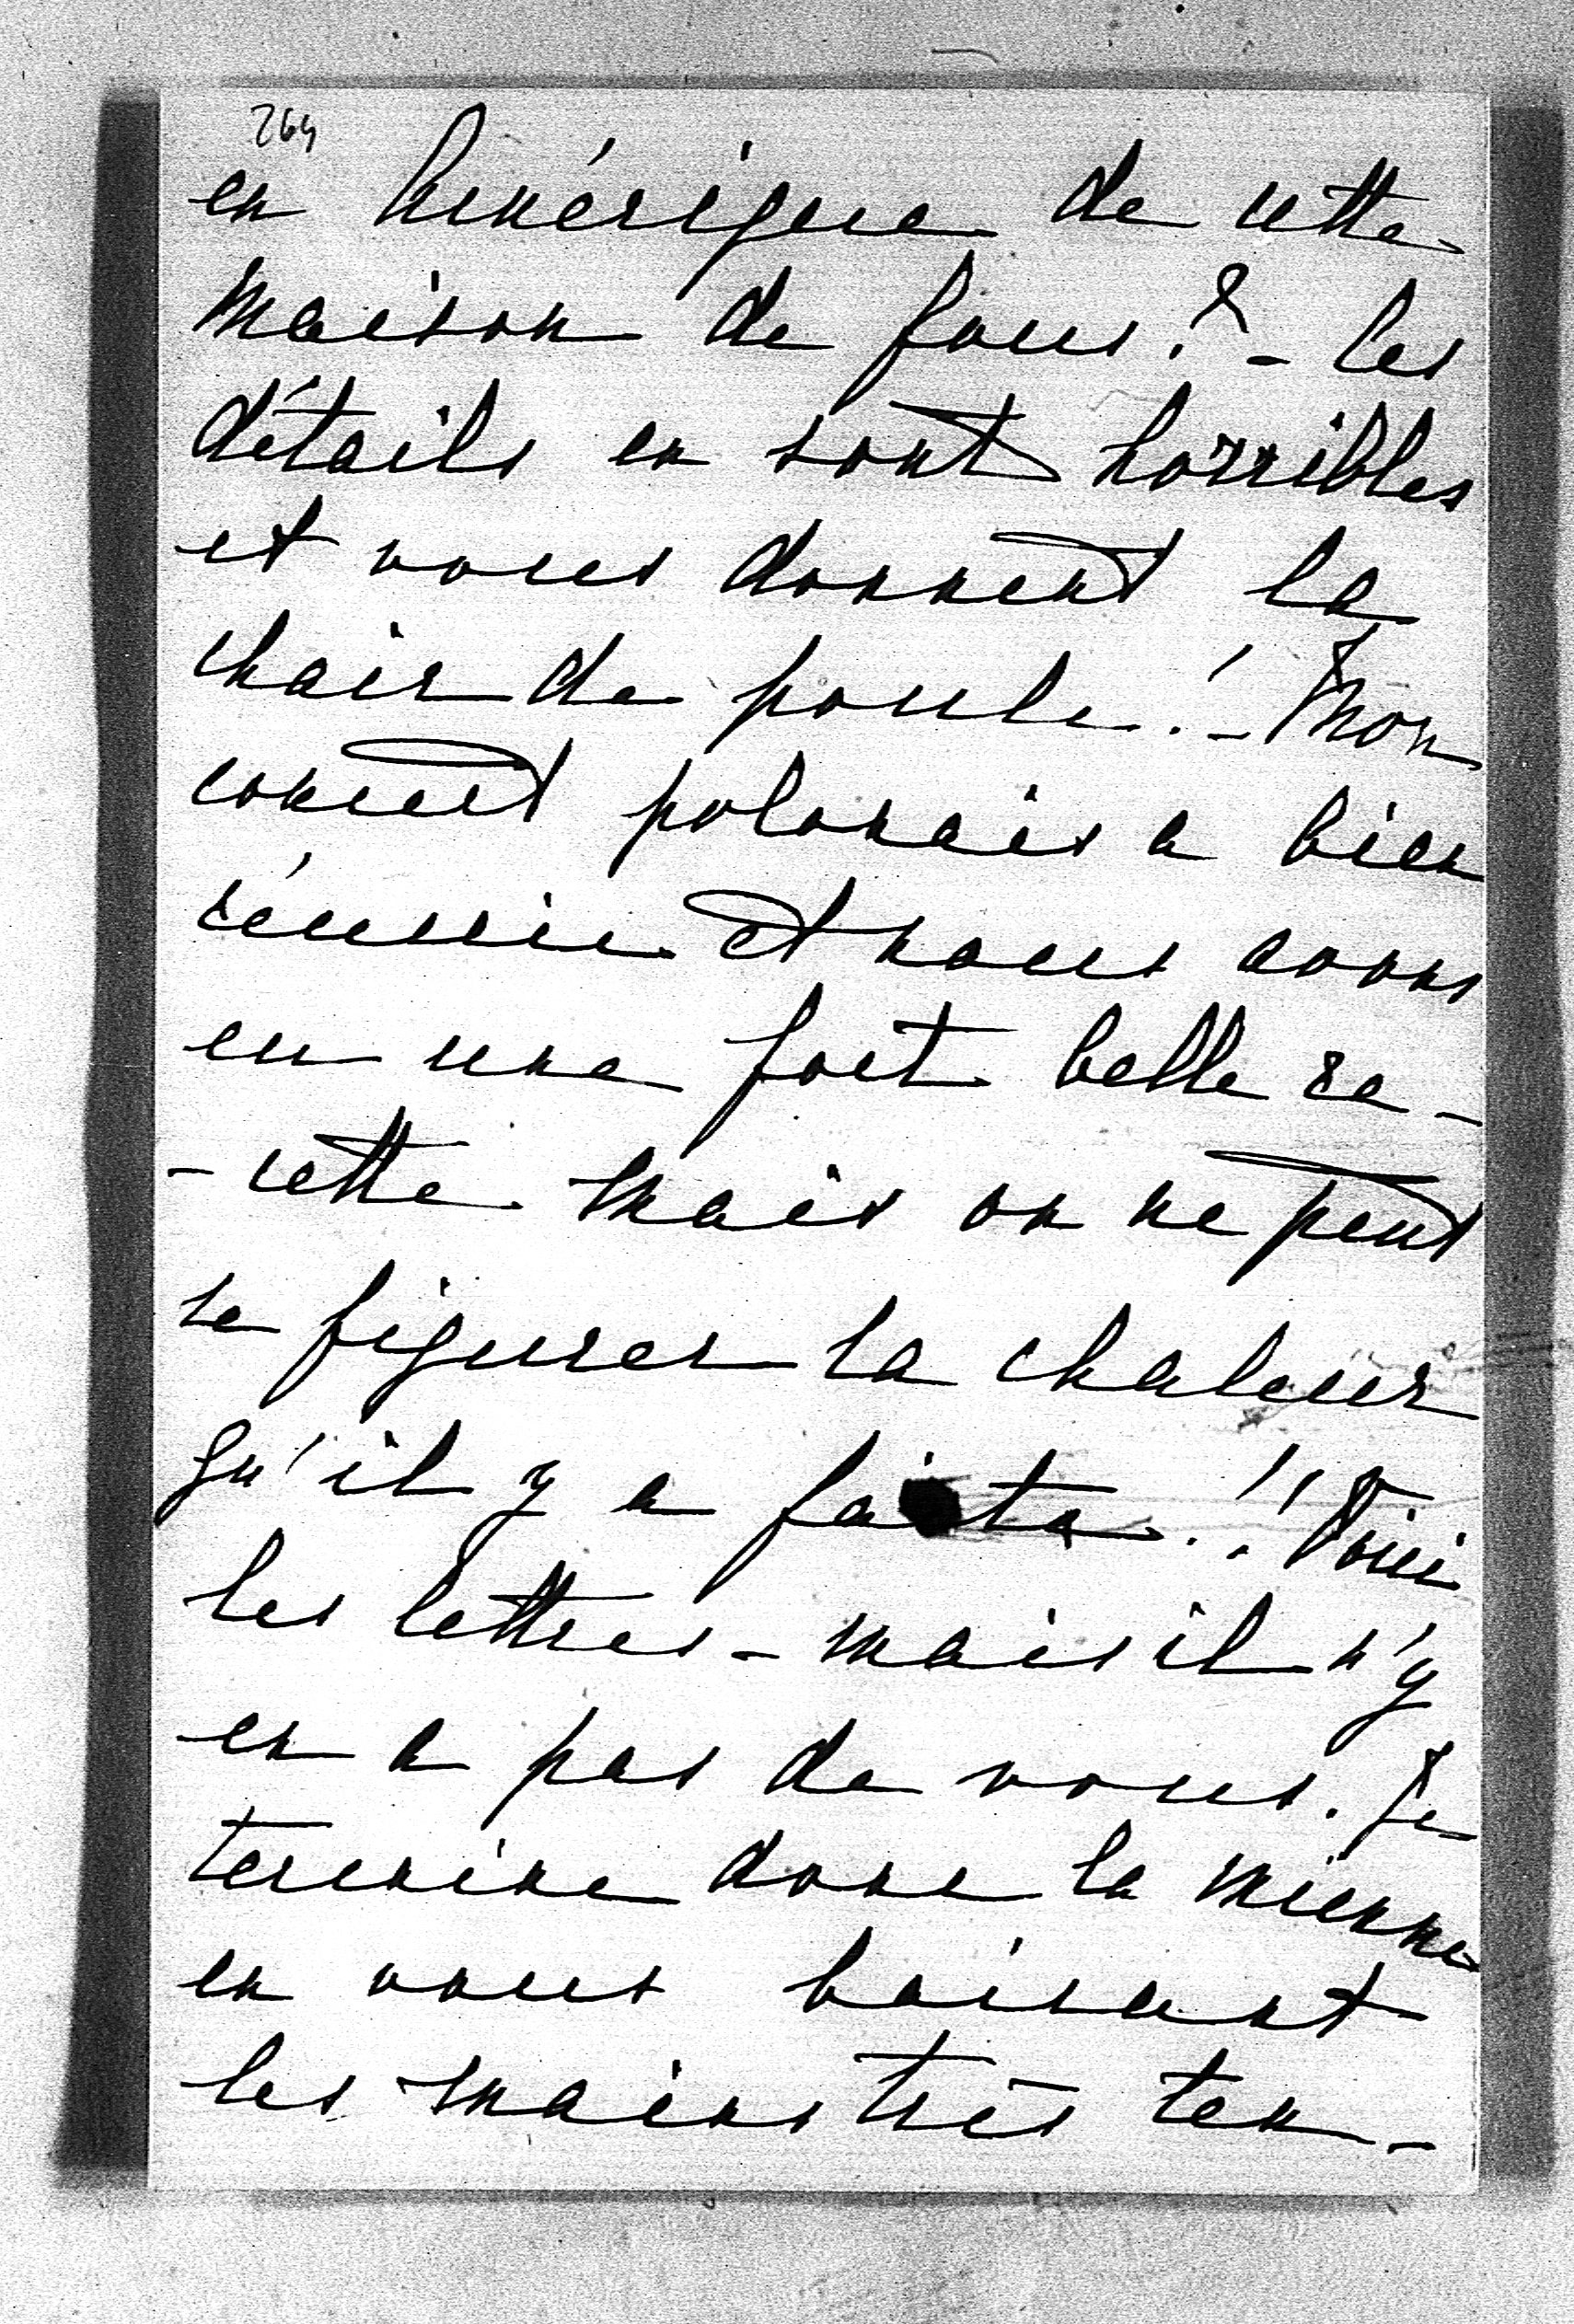 264
en Amérique de cette
maison de fous? - Les
détails en sont horribles
et vous donnent la
chair de poule! - Mon
concert polonais a bien
réussi et nous avons
eu une fort belle re-
-cette mais on ne peut
se figurer la chaleur
qu'il y a faite!! Voici
les lettres - mais il n'y
en a pas de vous. Je
termine donc la mienne
en vous baisant
les mains très ten-